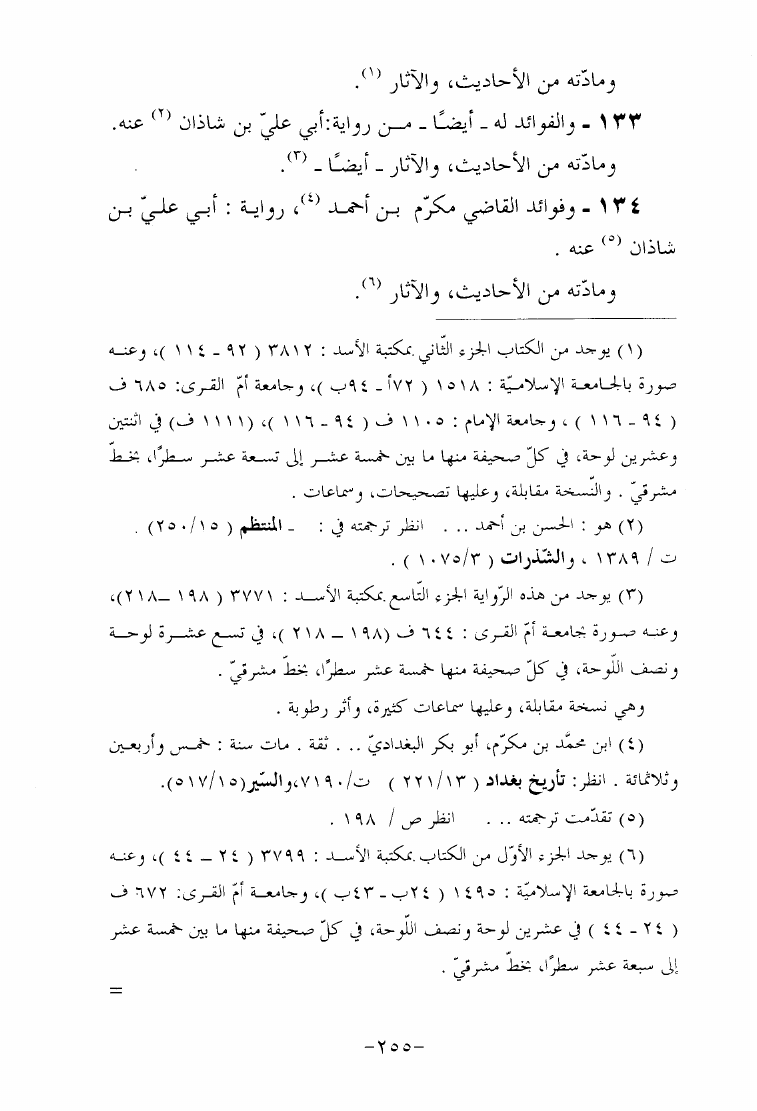 ومادّته من الأحاديث، والآثار (١).
١٣٣ - والفوائد له - أيضًا - مـن رواية:أبي عليّ بن شاذان (٢) عنه.
ومادّته من الأحاديث، والآثار - أيضًا - (٣).
١٣٤ - وفوائد القاضي مكرّم بن أحمد (٤)، رواية : أبي عليّ بـن
شاذان (٥) عنه .
ومادّته من الأحاديث، والآثار (٦).
(١) يوجد من الكتاب الجزء الثّاني بمكتبة الأسد : ٣٨١٢ ( ٩٢ - ١١٤ )، وعنـه
صورة بالجامعة الإسلاميّة : ١٥١٨ ( ٧٢أ - ٩٤ب )، وجامعة أمّ القرى: ٦٨٥ ف
( ٩٤ - ١١٦ ) ، وجامعة الإمام : ١١٠٥ ف ( ٩٤ - ١١٦ )، (١١١١ ف) في اثنتين
وعشرين لوحة، في كلّ صحيفة منها ما بين خمسة عشـر إلى تسـعة عشـر سـطرًا، بخـطّ
مشرقيّ . والنّسخة مقابلة، وعليها تصحيحات، وسماعات .
(٢) هو : الحسن بن أحمد .. . انظر ترجمته في : - المنتظم ( ٢٥٠/١٥) .
ت / ١٣٨٩ ، والشّذرات ( ١٠٧٥/٣ ) .
(٣) يوجد من هذه الرّواية الجزء التّاسع بمكتبة الأسـد : ٣٧٧١ ( ١٩٨ –٢١٨)،
وعنه صورة بجامعة أمّ القرى : ٦٤٤ ف (١٩٨ – ٢١٨ )، في تسع عشـرة لوحـة
ونصف اللّوحة، في كلّ صحيفة منها خمسة عشر سطرًا، بخطّ مشرقيّ .
وهي نسخة مقابلة، وعليها سماعات كثيرة، وأثر رطوبة .
(٤) ابن محمَّد بن مكرّم، أبو بكر البغداديّ .. . ثقة . مات سنة : خمـس وأربعـين
وثلاثمائة . انظر: تأريخ بغداد ( ٢٢١/١٣ ) ت/٧١٩٠،والسِّير(٥١٧/١٥).
(٥) تقدّمت ترجمته .. . انظر ص / ١٩٨ .
(٦) يوجد الجزء الأوّل من الكتاب بمكتبة الأسـد : ٣٧٩٩ ( ٢٤ – ٤٤ )، وعنـه
صورة بالجامعة الإسلاميّة : ١٤٩٥ ( ٢٤ب - ٤٣ب )، وجامعـة أمّ القرى: ٦٧٢ ف
( ٢٤ - ٤٤ ) في عشرين لوحة ونصف اللّوحة، في كلّ صحيفة منها ما بين خمسة عشر
إلى سبعة عشر سطرًا، بخطّ مشرقيّ .
=
-٢٥٥-